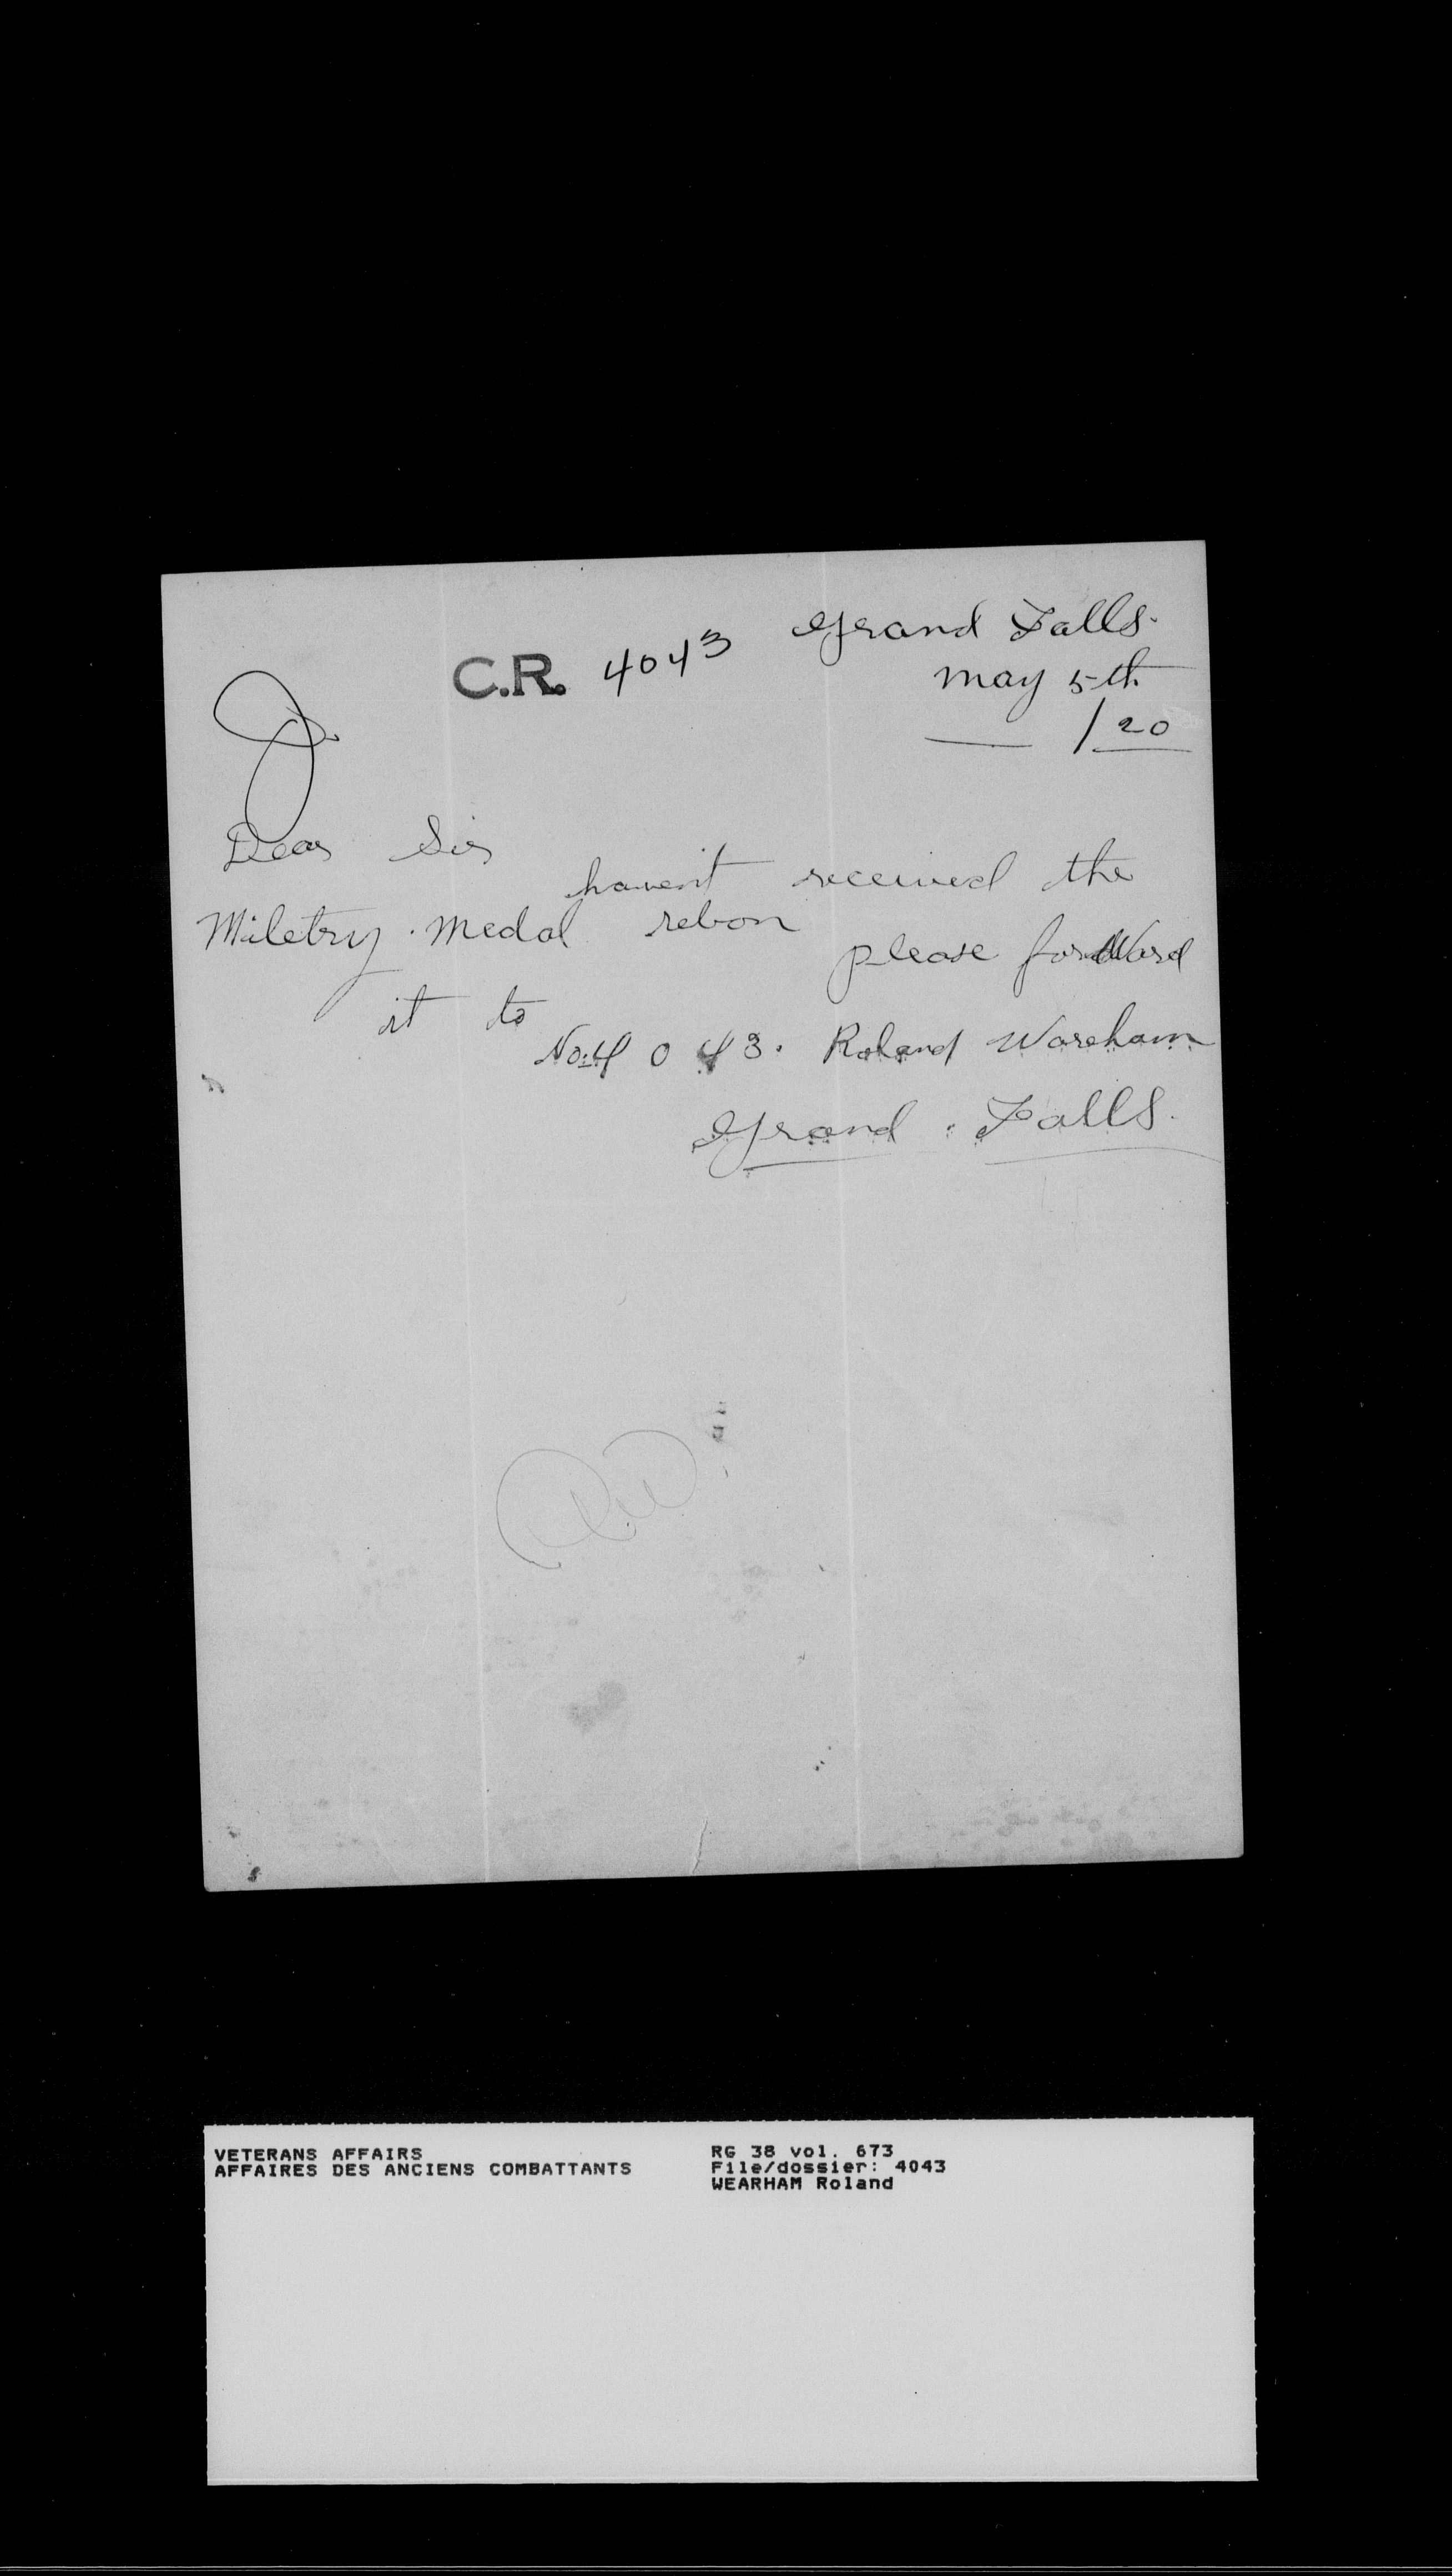 C.R. 4043 Grand Falls.
May 5th
/20
Dear Sir
havent received the
Miletry. Medal rebon
please forward
it to
No. 4043. Roland Wareham
Grand. Falls.
VETERANS AFFAIRS
AFFAIRES DES ANCIENS COMBATTANTS
RG 38 vol. 673
File/dossier: 4043
WEARHAM Roland